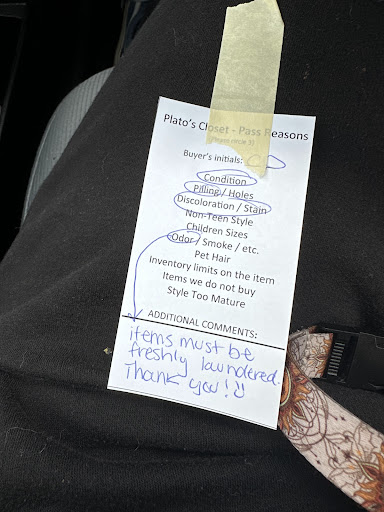 Plato's Closet - Pass Reasons
(Please circle 3)
Buyer's initials:
Condition
Pilling / Holes
Discoloration / Stain
Non-Teen Style
Children Sizes
Odor / Smoke / etc.
Pet Hair
Inventory limits on the item
Items we do not buy
Style Too Mature
ADDITIONAL COMMENTS:
items must be
freshly laundered.
Thank you!